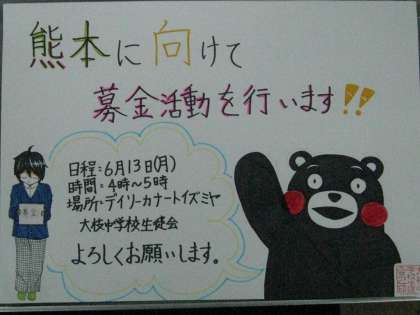 熊本に向けて
募金活動を行います!!
日程:6月13日(月)
時間:4時～5時
場所:デイリーカナートイズミヤ
大枝中学校生徒会
よろしくお願いします。